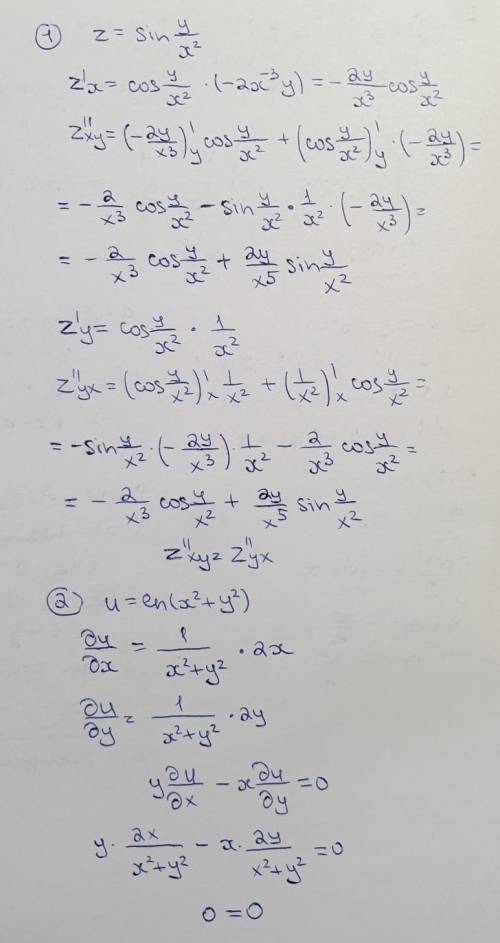 ① z = sin y/x²
z'x = cos y/x² · (-2x⁻³y) = - 2y/x³ cos y/x²
z''xy = (- 2y/x³)'y cos y/x² + (cos y/x²)'y · (- 2y/x³) =
= - 2/x³ cos y/x² - sin y/x² · 1/x² · (- 2y/x³) =
= - 2/x³ cos y/x² + 2y/x⁵ sin y/x²
z'y = cos y/x² · 1/x²
z''yx = (cos y/x²)'x 1/x² + (1/x²)'x cos y/x² =
= - sin y/x² · (- 2y/x³) · 1/x² - 2/x³ cos y/x² =
= - 2/x³ cos y/x² + 2y/x⁵ sin y/x²
z''xy = z''yx
② u = ln(x² + y²)
∂u/∂x = 1/(x² + y²) · 2x
∂u/∂y = 1/(x² + y²) · 2y
y ∂u/∂x - x ∂u/∂y = 0
y · 2x/(x² + y²) - x · 2y/(x² + y²) = 0
0 = 0